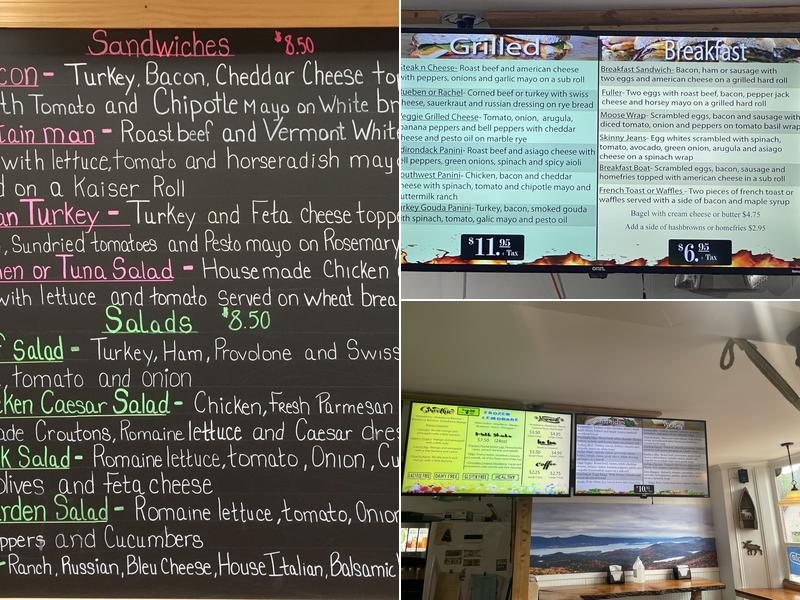 Sandwiches $8.50
con- Turkey, Bacon, Cheddar Cheese to
th Tomato and Chipotle Mayo on White br
tain man - Roast beef and Vermont Whit
with lettuce, tomato and horseradish may
d on a Kaiser Roll
an Turkey - Turkey and Feta cheese topp
, Sundried tomatoes and Pesto mayo on Rosemary
ken or Tuna Salad - Housemade Chicken
with lettuce and tomato served on wheat brea
Salads $8.50
f Salad - Turkey, Ham, Provolone and Swiss
, tomato and onion
ken Caesar Salad - Chicken, Fresh Parmesan
ade Croutons, Romaine lettuce and Caesar dres
k Salad - Romaine lettuce, tomato, Onion, Cu
olives and feta cheese
arden Salad - Romaine lettuce, tomato, Onion
ppers and Cucumbers
- Ranch, Russian, Bleu Cheese, House Italian, Balsamic
Grilled
Steak n Cheese- Roast beef and american cheese
with peppers, onions and garlic mayo on a sub roll
Rueben or Rachel- Corned beef or turkey with swiss
cheese, sauerkraut and russian dressing on rye bread
Veggie Grilled Cheese- Tomato, onion, arugula,
banana peppers and bell peppers with cheddar
cheese and pesto oil on marble rye
Adirondack Panini- Roast beef and asiago cheese with
bell peppers, green onions, spinach and spicy aioli
Southwest Panini- Chicken, bacon and cheddar
cheese with spinach, tomato and chipotle mayo and
buttermilk ranch
Turkey Gouda Panini- Turkey, bacon, smoked gouda
with spinach, tomato, galic mayo and pesto oil
$11.95 + Tax
Breakfast
Breakfast Sandwich- Bacon, ham or sausage with
two eggs and american cheese on a grilled hard roll
Fuller- Two eggs with roast beef, bacon, pepper jack
cheese and horsey mayo on a grilled hard roll
Moose Wrap- Scrambled eggs, bacon and sausage with
diced tomato, onion and peppers on tomato basil wrap
Skinny Jeans- Egg whites scrambled with spinach,
tomato, avocado, green onion, arugula and asiago
cheese on a spinach wrap
Breakfast Boat- Scrambled eggs, bacon, sausage and
homefries topped with american cheese in a sub roll
French Toast or Waffles - Two pieces of french toast or
waffles served with a side of bacon and maple syrup
Bagel with cream cheese or butter $4.75
Add a side of hashbrowns or homefries $2.95
$6.95 + Tax
onn.
Smoothie
FROZEN
LEMONADE
Milk Shake
$7.50 (24oz)
Ice Tea
Coffee
$2.25 $2.75
DAIRY FREE
GLUTEN FREE
HEALTHY